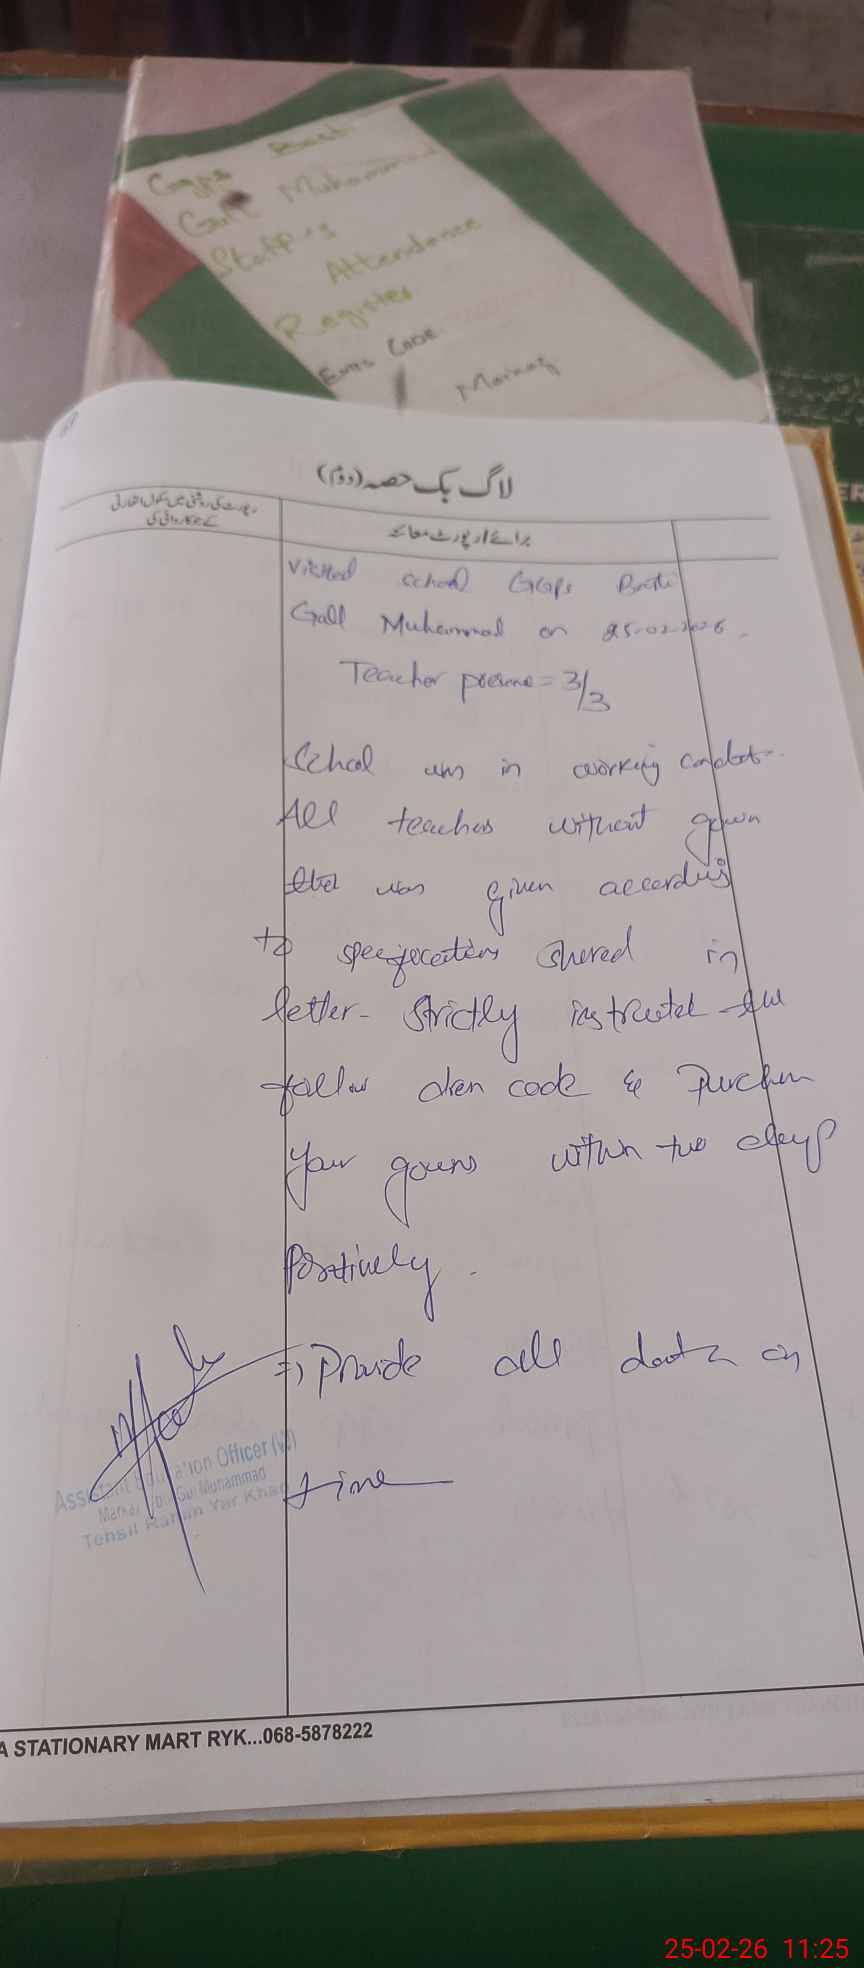 GGPS Basti
Gull Muhammad
Staff's
Attendance
Register
Emis Code
Morning
لاگ بک حصہ (دوم)
رپورٹ کی روشنی میں سکول اتھارٹی
نے جو کاروائی کی
برائے رپورٹ معائنہ
Visited school GGPS Basti
Gull Muhammad on 25-02-2026.
Teacher present = 3/3
School was in working
All teachers without gown
that was given according
to specifications shared in
letter- Strictly instructed
follow dress code & Purchase
Your gowns within two days
Positively.
=> Provide all data on
time
Assistant Education Officer (W)
Markaz Gul Muhammad
Tehsil Rahim Yar Khan
A STATIONARY MART RYK...068-5878222
25-02-26 11:25